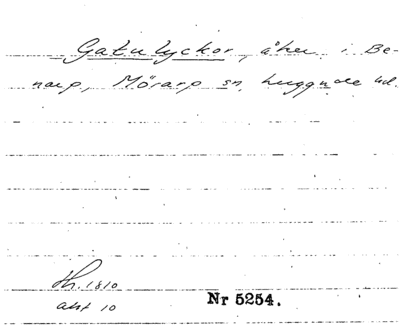 Gatulyckor, åker i Be-
narp, Mörarp sn, Luggude hd.
Sk. 1810
akt 10
Nr 5254.